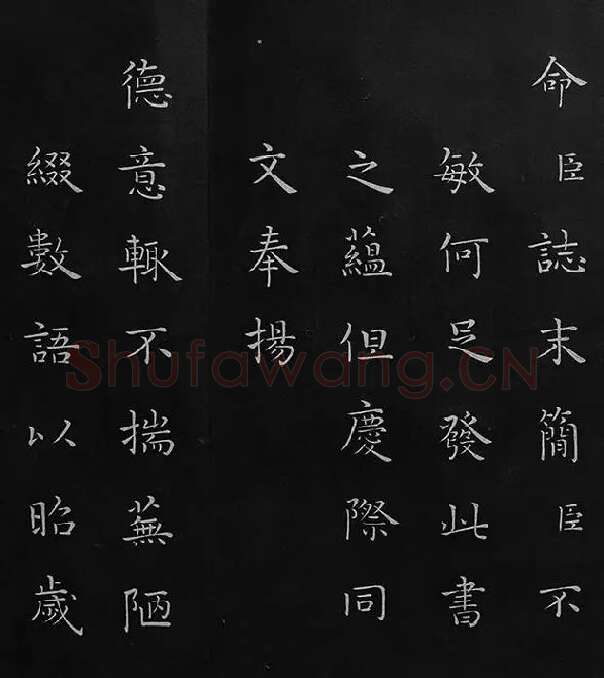 命臣誌末簡臣不
敏何足發此書
之蘊但慶際同
文奉揚
德意輙不揣蕪陋
綴數語以昭歲
Shufawang.CN